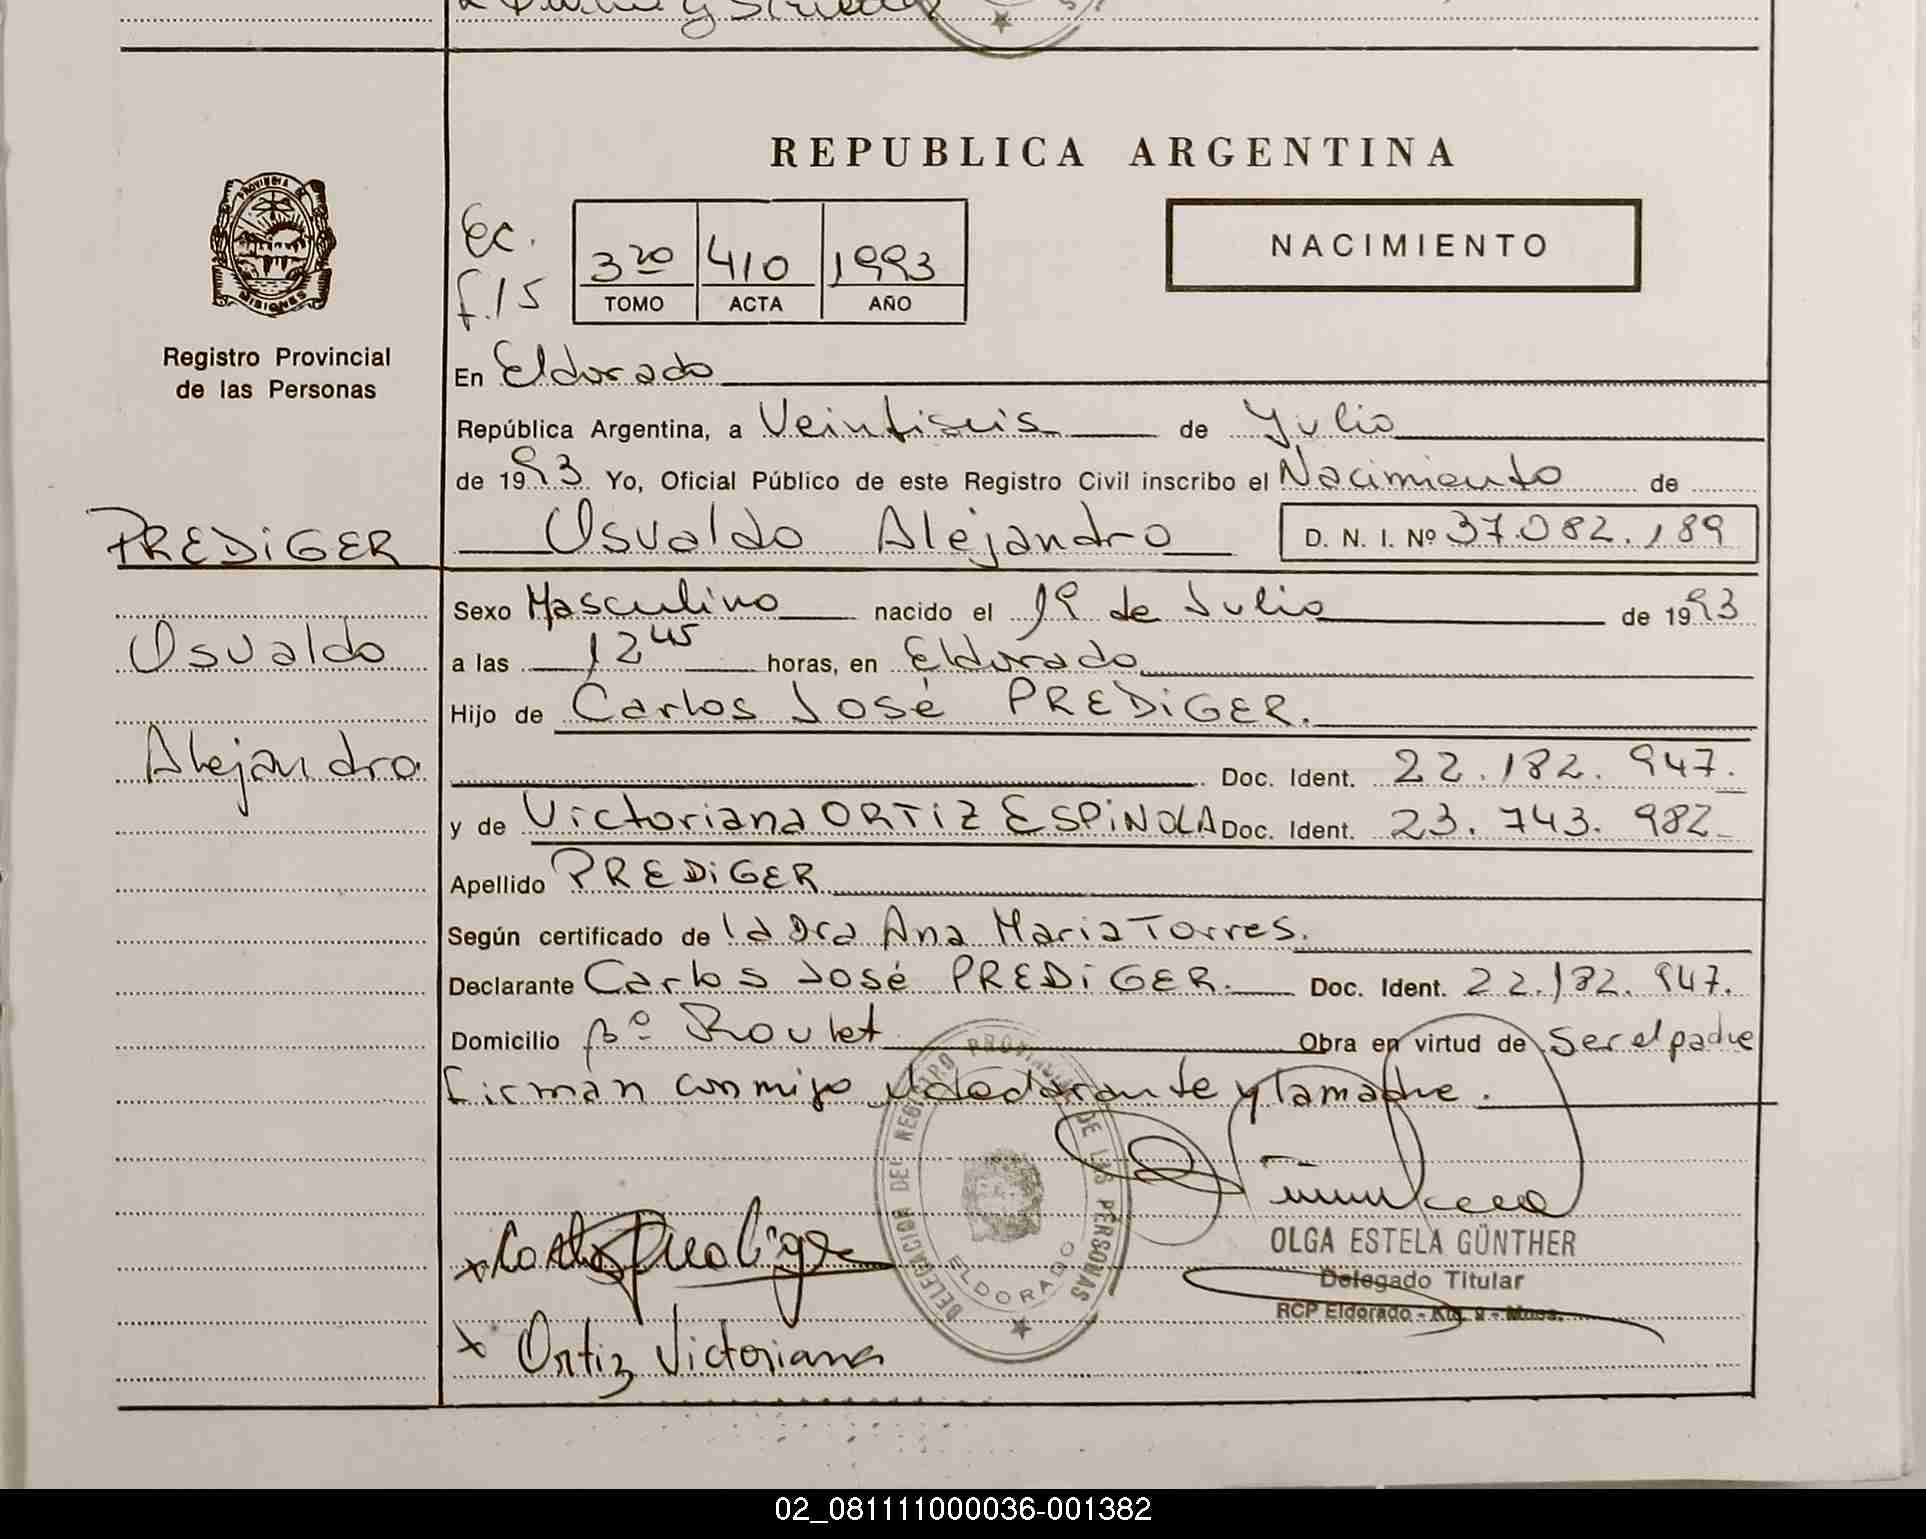 REPUBLICA ARGENTINA
PROVINCIA DE MISIONES
Ec.
f.15
3ro 410 1993
TOMO ACTA AÑO
NACIMIENTO
Registro Provincial
de las Personas
En Eldorado
República Argentina, a Veintiseis de Julio
de 1993 Yo, Oficial Público de este Registro Civil inscribo el Nacimiento de
PREDiGER Osvaldo Alejandro D. N. I. Nº 37.082.189
Sexo Masculino nacido el 19 de Julio de 1993
Osvaldo a las 12 45 horas, en Eldorado
Hijo de Carlos José PREDiGER.
Alejandro Doc. Ident. 22.182.947.
y de Victoriana ORTiZ ESPiNOLA Doc. Ident. 23.743.982
Apellido PREDiGER
Según certificado de la Dra Ana Maria Torres.
Declarante Carlos José PREDiGER. Doc. Ident. 22.182.947.
Domicilio Bº Roulet Obra en virtud de Ser el padre
firman conmigo el declarante y la madre.
DELEGACION DEL REGISTRO PROVINCIAL DE LAS PERSONAS
ELDORADO
OLGA ESTELA GÜNTHER
Delegado Titular
RCP Eldorado - Km. 9 - Mnes.
x Ortiz Victoriana
02_081111000036-001382